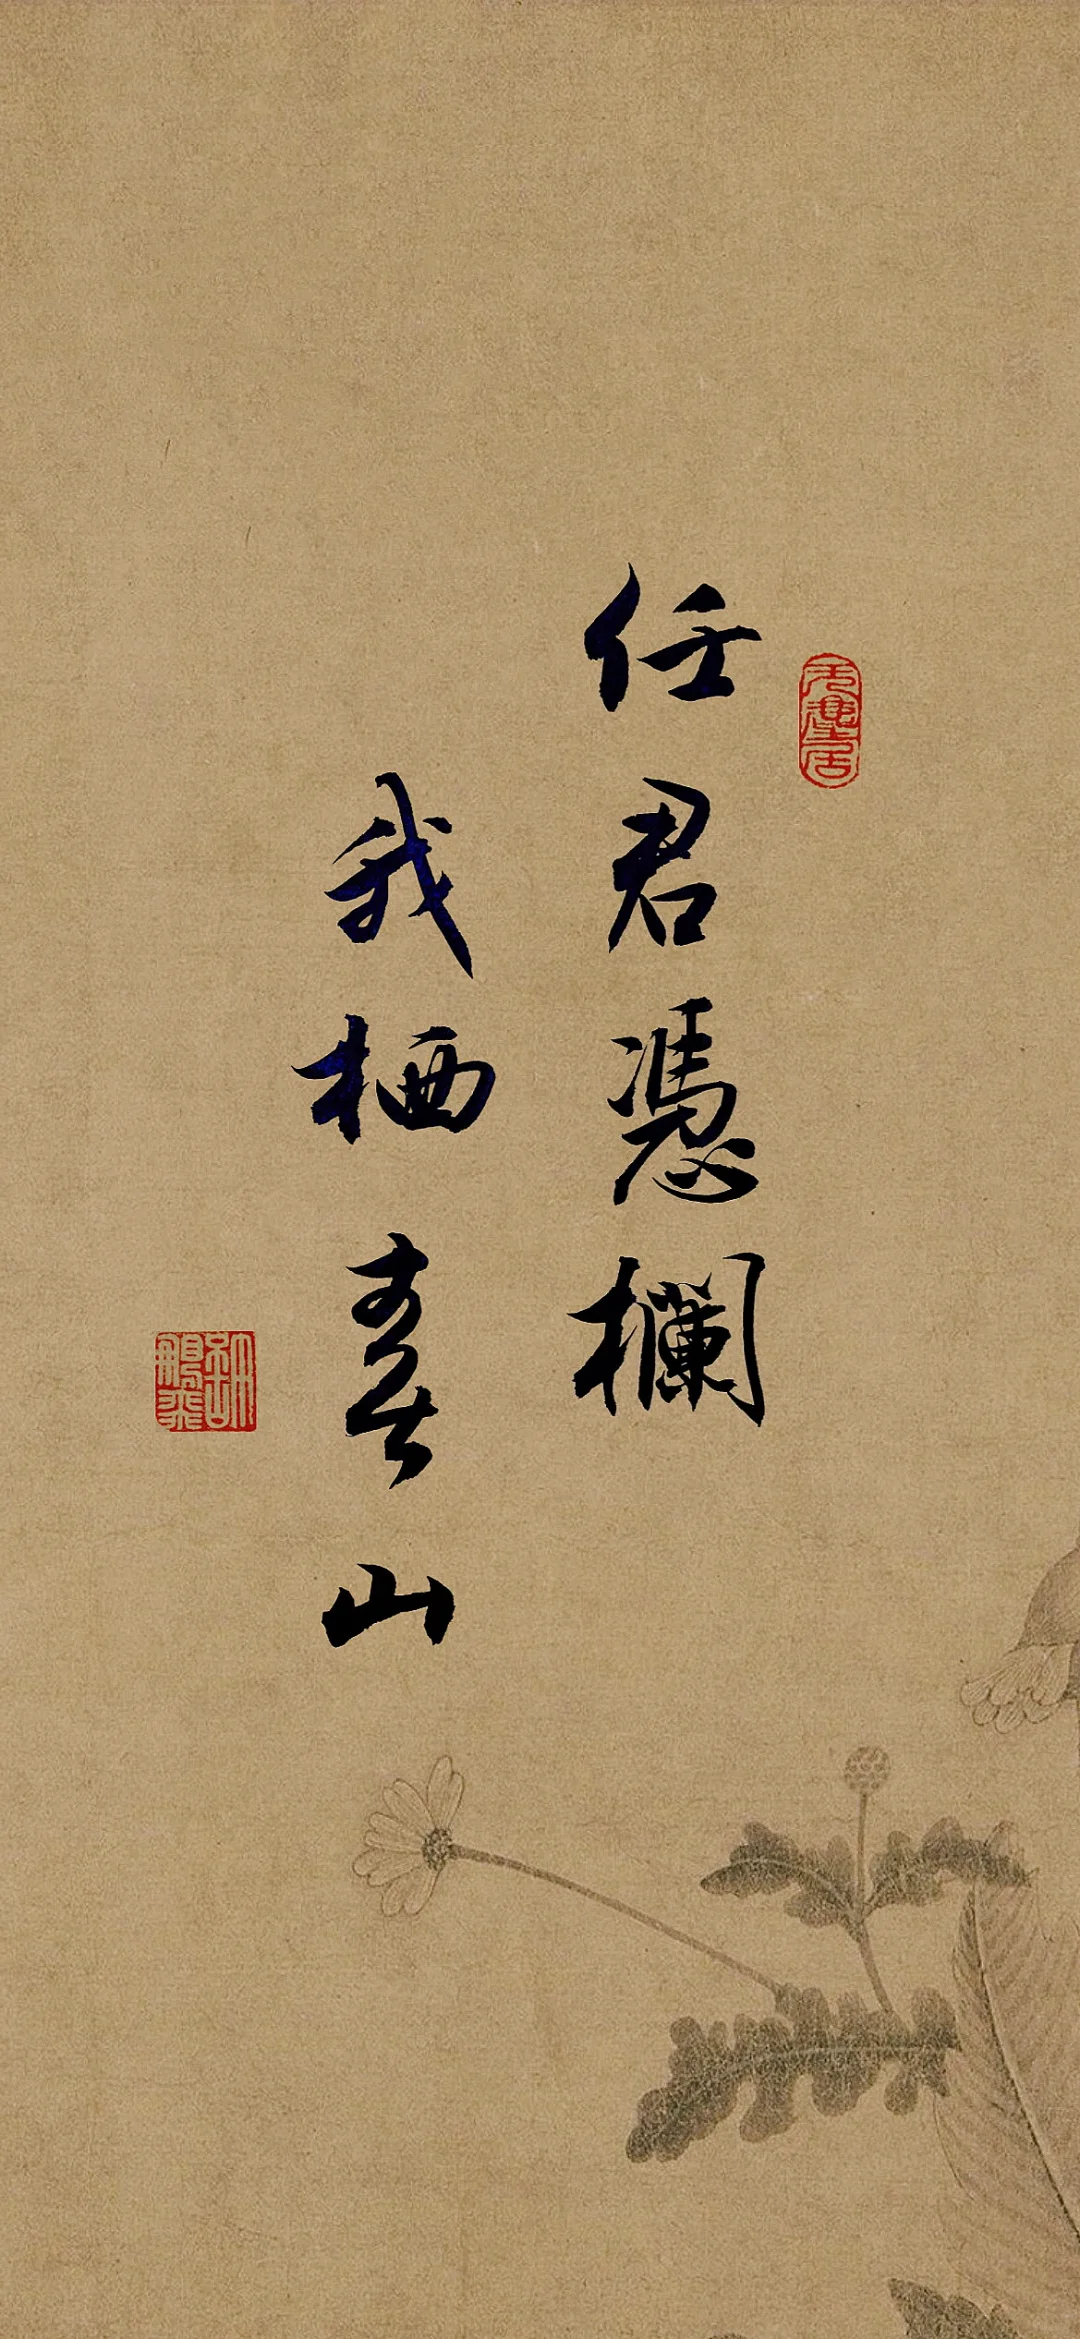 任君憑欄
我栖春山